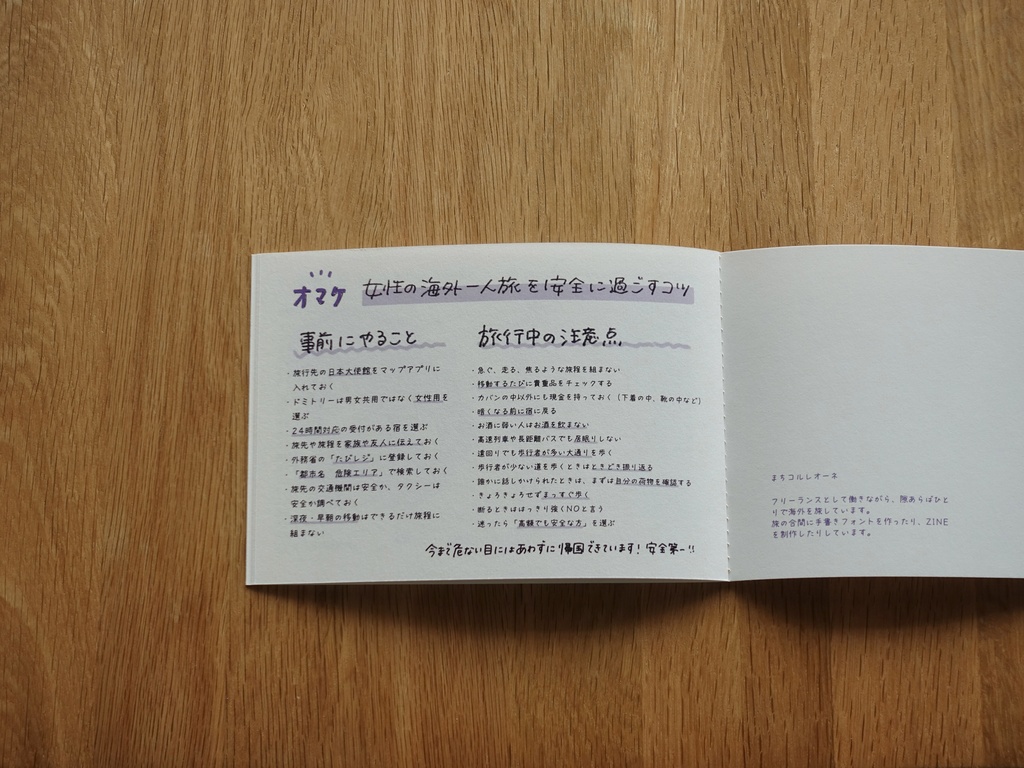 オマケ 女性の海外一人旅を安全に過ごすコツ
事前にやること
・旅行先の日本大使館をマップアプリに
入れておく
・ドミトリーは男女共用ではなく女性用を
選ぶ
・24時間対応の受付がある宿を選ぶ
・旅先や旅程を家族や友人に伝えておく
・外務省の「たびレジ」に登録しておく
・「都市名 危険エリア」で検索しておく
・旅先の交通機関は安全か、タクシーは
安全か調べておく
・深夜・早朝の移動はできるだけ旅程に
組まない
旅行中の注意点
・急ぐ、走る、焦るような旅程を組まない
・移動するたびに貴重品をチェックする
・カバンの中以外にも現金を持っておく（下着の中、靴の中など）
・暗くなる前に宿に戻る
・お酒に弱い人はお酒を飲まない
・高速列車や長距離バスでも居眠りしない
・遠回りでも歩行者が多い大通りを歩く
・歩行者が少ない道を歩くときはときどき振り返る
・誰かに話しかけられたときは、まずは自分の荷物を確認する
・きょろきょろせずまっすぐ歩く
・断るときははっきり強くNOと言う
・迷ったら「高額でも安全な方」を選ぶ
今まで危ない目にはあわずに帰国できています！安全第一!!
まちコルレオーネ
フリーランスとして働きながら、隙あらばひと
りで海外を旅しています。
旅の合間に手書きフォントを作ったり、ZINE
を制作したりしています。